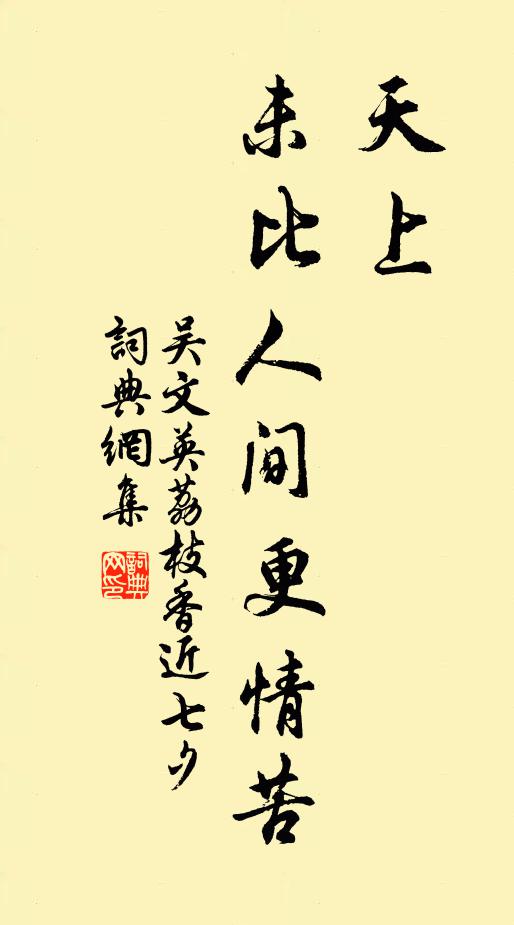 天上
未比人间更情苦
吴文英荔枝香近七夕
詞典網集
詞典网印